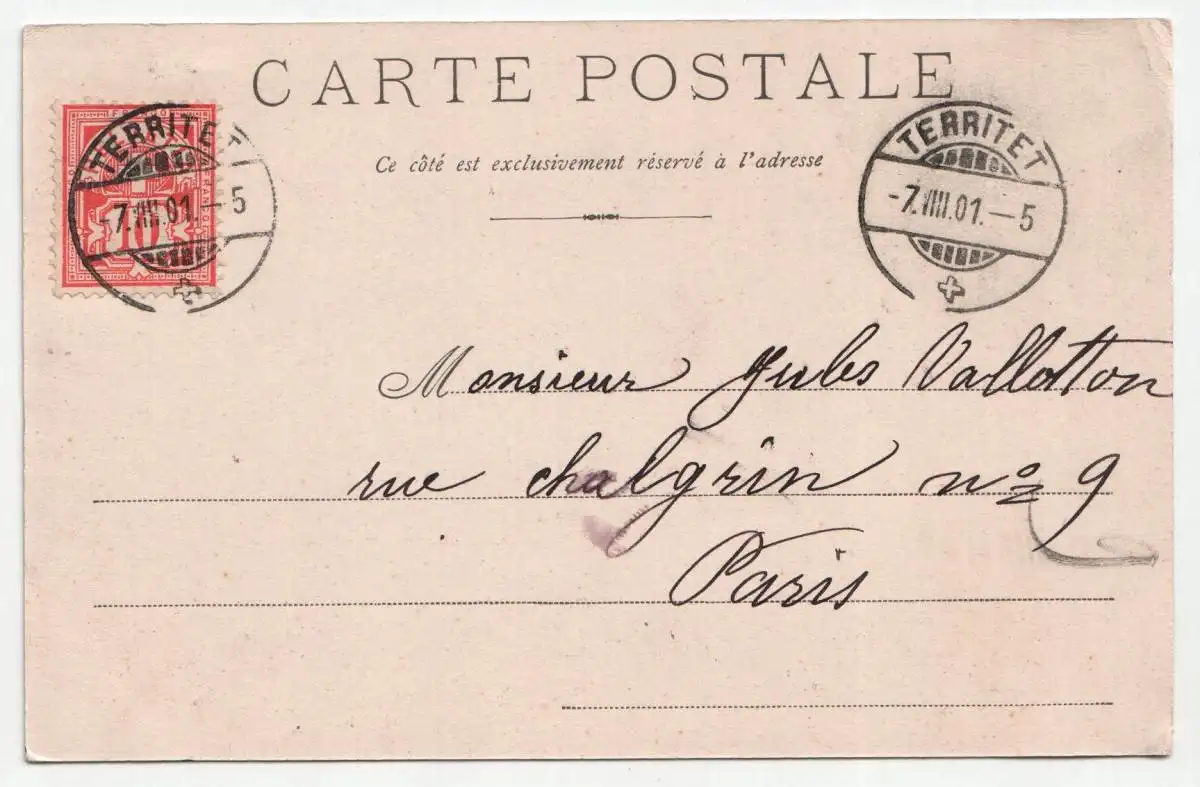 CARTE POSTALE
Ce côté est exclusivement réservé à l'adresse
TERRITET
-7.VIII.01.-5
10
TERRITET
-7.VIII.01.-5
Monsieur Jules Vallotton
rue chalgrin no 9
Paris